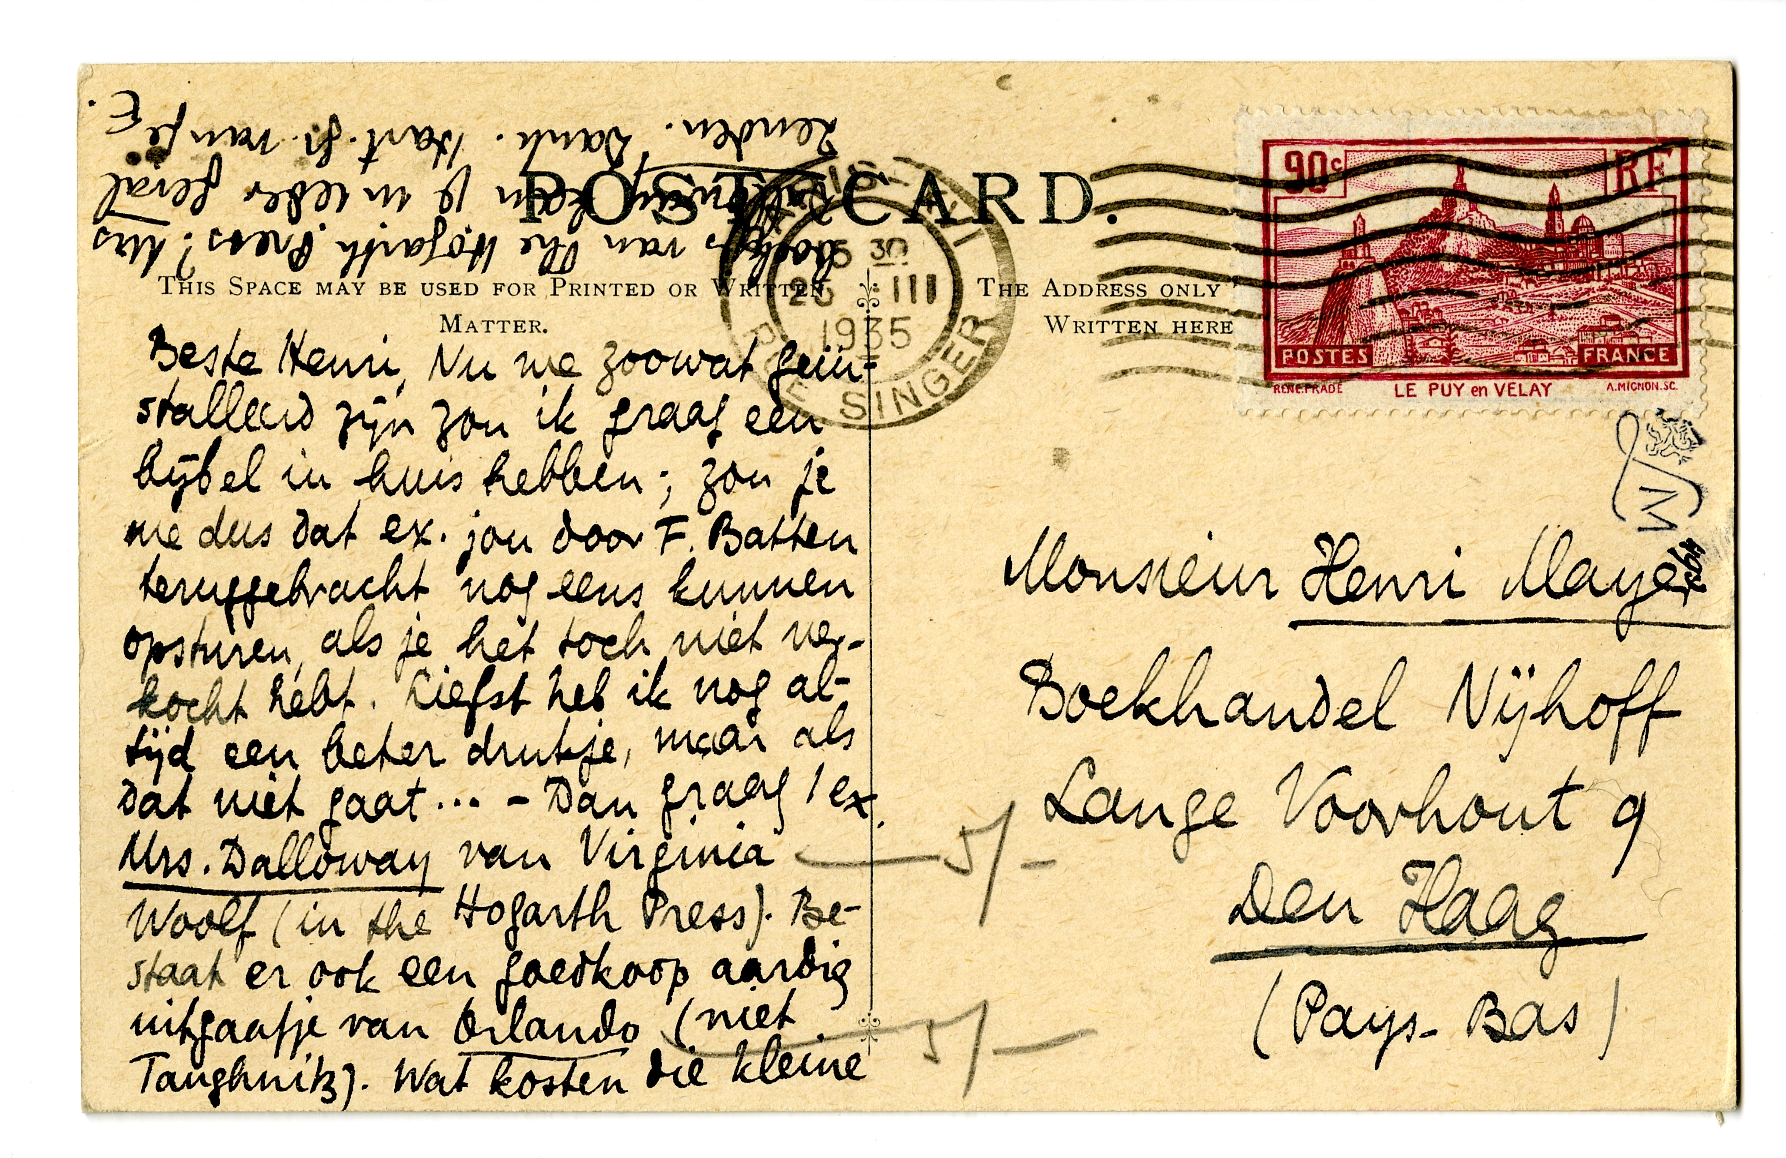 POST CARD.
THIS SPACE MAY BE USED FOR PRINTED OR WRITTEN
MATTER.
THE ADDRESS ONLY
WRITTEN HERE
Beste Henri, Nu we zoowat geïn-
stalleerd zijn zou ik graag een
bijbel in huis hebben; zou je
me dus dat ex. jou door F. Batten
teruggebracht nog eens kunnen
opsturen, als je het toch niet ver-
kocht hebt. Liefst heb ik nog al-
tijd een beter drukje, maar als
dat niet gaat... - Dan graag 1 ex.
Mrs. Dalloway van Virginia
Woolf (in the Hogarth Press). Be-
staat er ook een goedkoop aardig
uitgaafje van Orlando (niet
Tauchnitz). Wat kosten die kleine
boekjes van The Hogarth Press? Mrs
Dalloway kan je in ieder geval
zenden. Dank. Hart. gr. van je
E.
5/-
5/-
Monsieur Henri Mayer
Boekhandel Nijhoff
Lange Voorhout 9
Den Haag
(Pays-Bas)
90c
RF
POSTES
FRANCE
RENE.PRADE
LE PUY en VELAY
A.MIGNON.SC.
15 30
III
1935
RUE SINGER
M